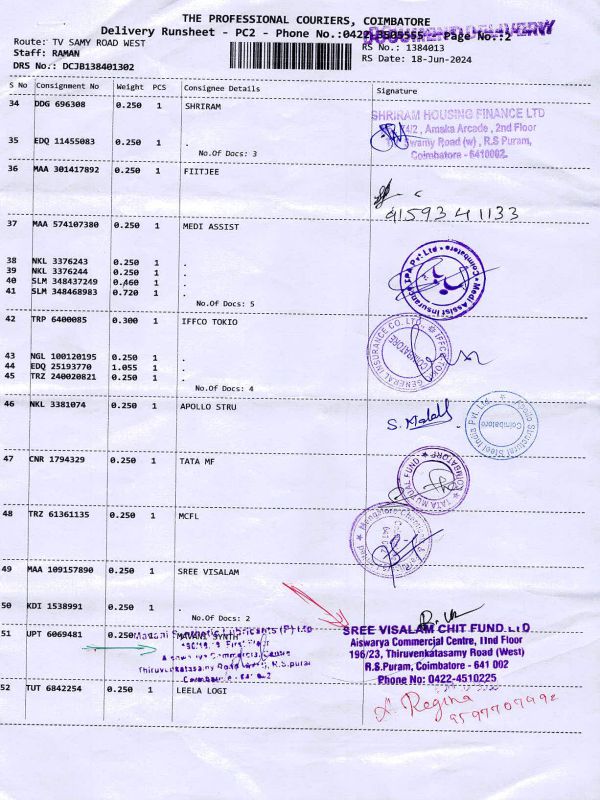 THE PROFESSIONAL COURIERS, COIMBATORE
Delivery Runsheet - PC2 - Phone No.:0422 Page No.:2
Route: TV SAMY ROAD WEST RS No.: 1384013
Staff: RAMAN RS Date: 18-Jun-2024
DRS No.: DCJB138401302
S No Consignment No Weight PCS Consignee Details Signature
34 DDG 696308 0.250 1 SHRIRAM
SHRIRAM HOUSING FINANCE LTD
Amska Arcade , 2nd Floor
Road (w) , R.S Puram,
Coimbatore - 6410002.
35 EDQ 11455083 0.250 1 .
No.Of Docs: 3
36 MAA 301417892 0.250 1 FIITJEE
9159341133
37 MAA 574107380 0.250 1 MEDI ASSIST
Medi Assist Insurance TPA Pvt. Ltd Coimbatore
38 NKL 3376243 0.250 1 .
39 NKL 3376244 0.250 1 .
40 SLM 348437249 0.460 1 .
41 SLM 348468983 0.720 1 .
No.Of Docs: 5
42 TRP 6400085 0.300 1 IFFCO TOKIO
IFFCO TOKIO GENERAL INSURANCE CO. LTD.
COIMBATORE
43 NGL 100120195 0.250 1 .
44 EDQ 25193770 1.055 1 .
45 TRZ 240020821 0.250 1 .
No.Of Docs: 4
46 NKL 3381074 0.250 1 APOLLO STRU
Structural Steel India Pvt. Ltd.
Coimbatore
47 CNR 1794329 0.250 1 TATA MF
TATA MUTUAL FUND COIMBATORE
48 TRZ 61361135 0.250 1 MCFL
49 MAA 109157890 0.250 1 SREE VISALAM
50 KDI 1538991 0.250 1 .
No.Of Docs: 2
SREE VISALAM CHIT FUND.LTD
Aiswarya Commercial Centre, IInd Floor
196/23, Thiruvenkatasamy Road (West)
R.S.Puram, Coimbatore - 641 002
Phone No: 0422-4510225
51 UPT 6069481 0.250 MAVANI SYNTH
Lubricants (P) Ltd
First Floor
Commercial Centre
Thiruvenkatasamy Road R.S.puram
52 TUT 6842254 0.250 1 LEELA LOGI
Regina